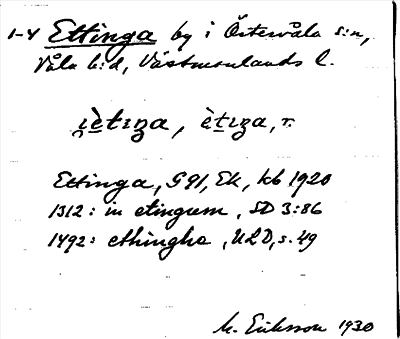 1-4 Ettinga by i Östervåla s:n,
Våla h:d, Västmanlands l.
i̯ètɪŋa, ètɪŋa, r.
Ettinga, G91, Ek, kb 1920
1312: in etingium, SD 3:86
1492: ethingha, ULD, s. 49
M. Eriksson 1930